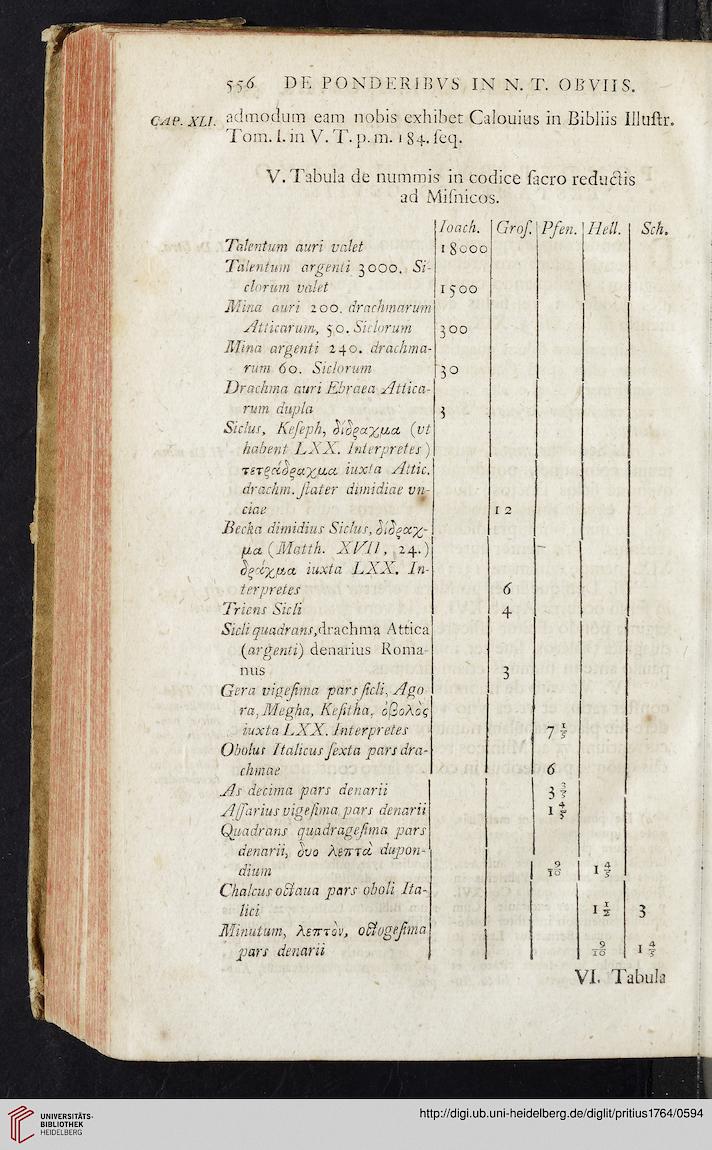 556 DE PONDERIBVS IN N. T. OBVIIS.
CAP. XLI. admodum eam nobis exhibet Calouius in Bibliis Illuſtr.
Tom. I. in V. T. p. m. 184. ſeq.
V. Tabula de nummis in codice ſacro reductis
ad Miſnicos.
Ioach. Groſ. Pfen. Hell. Sch.
Talentum auri valet 18000
Talentum argenti 3000. Si-
clorum valet 1500
Mina auri 200. drachmarum
Atticarum, 50. Siclorum 300
Mina argenti 240. drachma-
rum 60. Siclorum 30
Drachma auri Ebraea Attica-
rum dupla 3
Siclus, Keſeph, δίδραχμα (vt
habent LXX. Interpretes)
τετράδραχμα iuxta Attic.
drachm. ſtater dimidiae vn-
ciae 12
Becka dimidius Siclus, δίδραχ-
μα (Matth. XVII, 24.)
δράχμα iuxta LXX. In-
terpretes 6
Triens Sicli 4
Sicli quadrans, drachma Attica
(argenti) denarius Roma-
nus 3
Gera vigeſima pars ſicli, Ago
ra, Megha, Keſitha, ὀβολὸς
iuxta LXX. Interpretes 7 1/5
Obolus Italicus ſexta pars dra-
chmae 6
As decima pars denarii 3 3/5
Aſſarius vigeſima pars denarii 1 4/5
Quadrans quadrageſima pars
denarii, δυο λεπτὰ dupon-
dium 9/10 1 4/5
Chalcus octaua pars oboli Ita-
lici 1 1/2 3
Minutum, λεπτὸν, octogeſima
pars denarii 9/10 1 4/5
VI. Tabula
UNIVERSITÄTS-
BIBLIOTHEK
HEIDELBERG
http://digi.ub.uni-heidelberg.de/diglit/pritius1764/0594